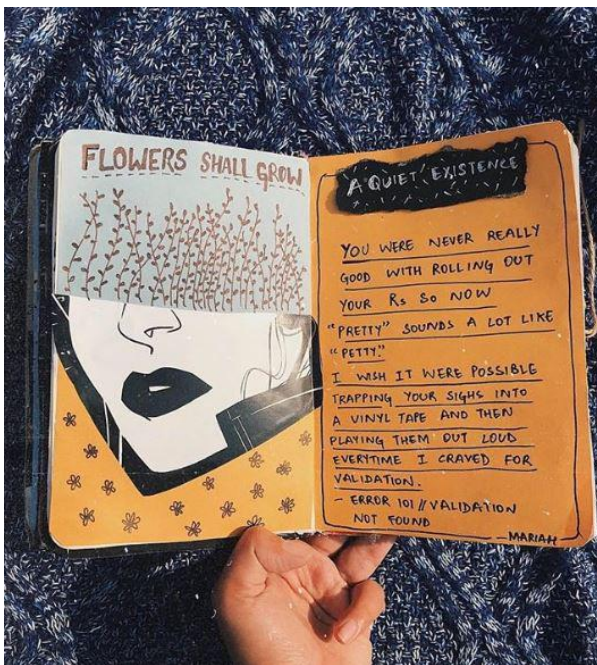 FLOWERS SHALL GROW
A QUIET EXISTENCE
YOU WERE NEVER REALLY
GOOD WITH ROLLING OUT
YOUR Rs SO NOW
"PRETTY" SOUNDS A LOT LIKE
"PETTY."
I WISH IT WERE POSSIBLE
TRAPPING YOUR SIGHS INTO
A VINYL TAPE AND THEN
PLAYING THEM OUT LOUD
EVERYTIME I CRAVED FOR
VALIDATION.
- ERROR 101 // VALIDATION
NOT FOUND
-MARIAH